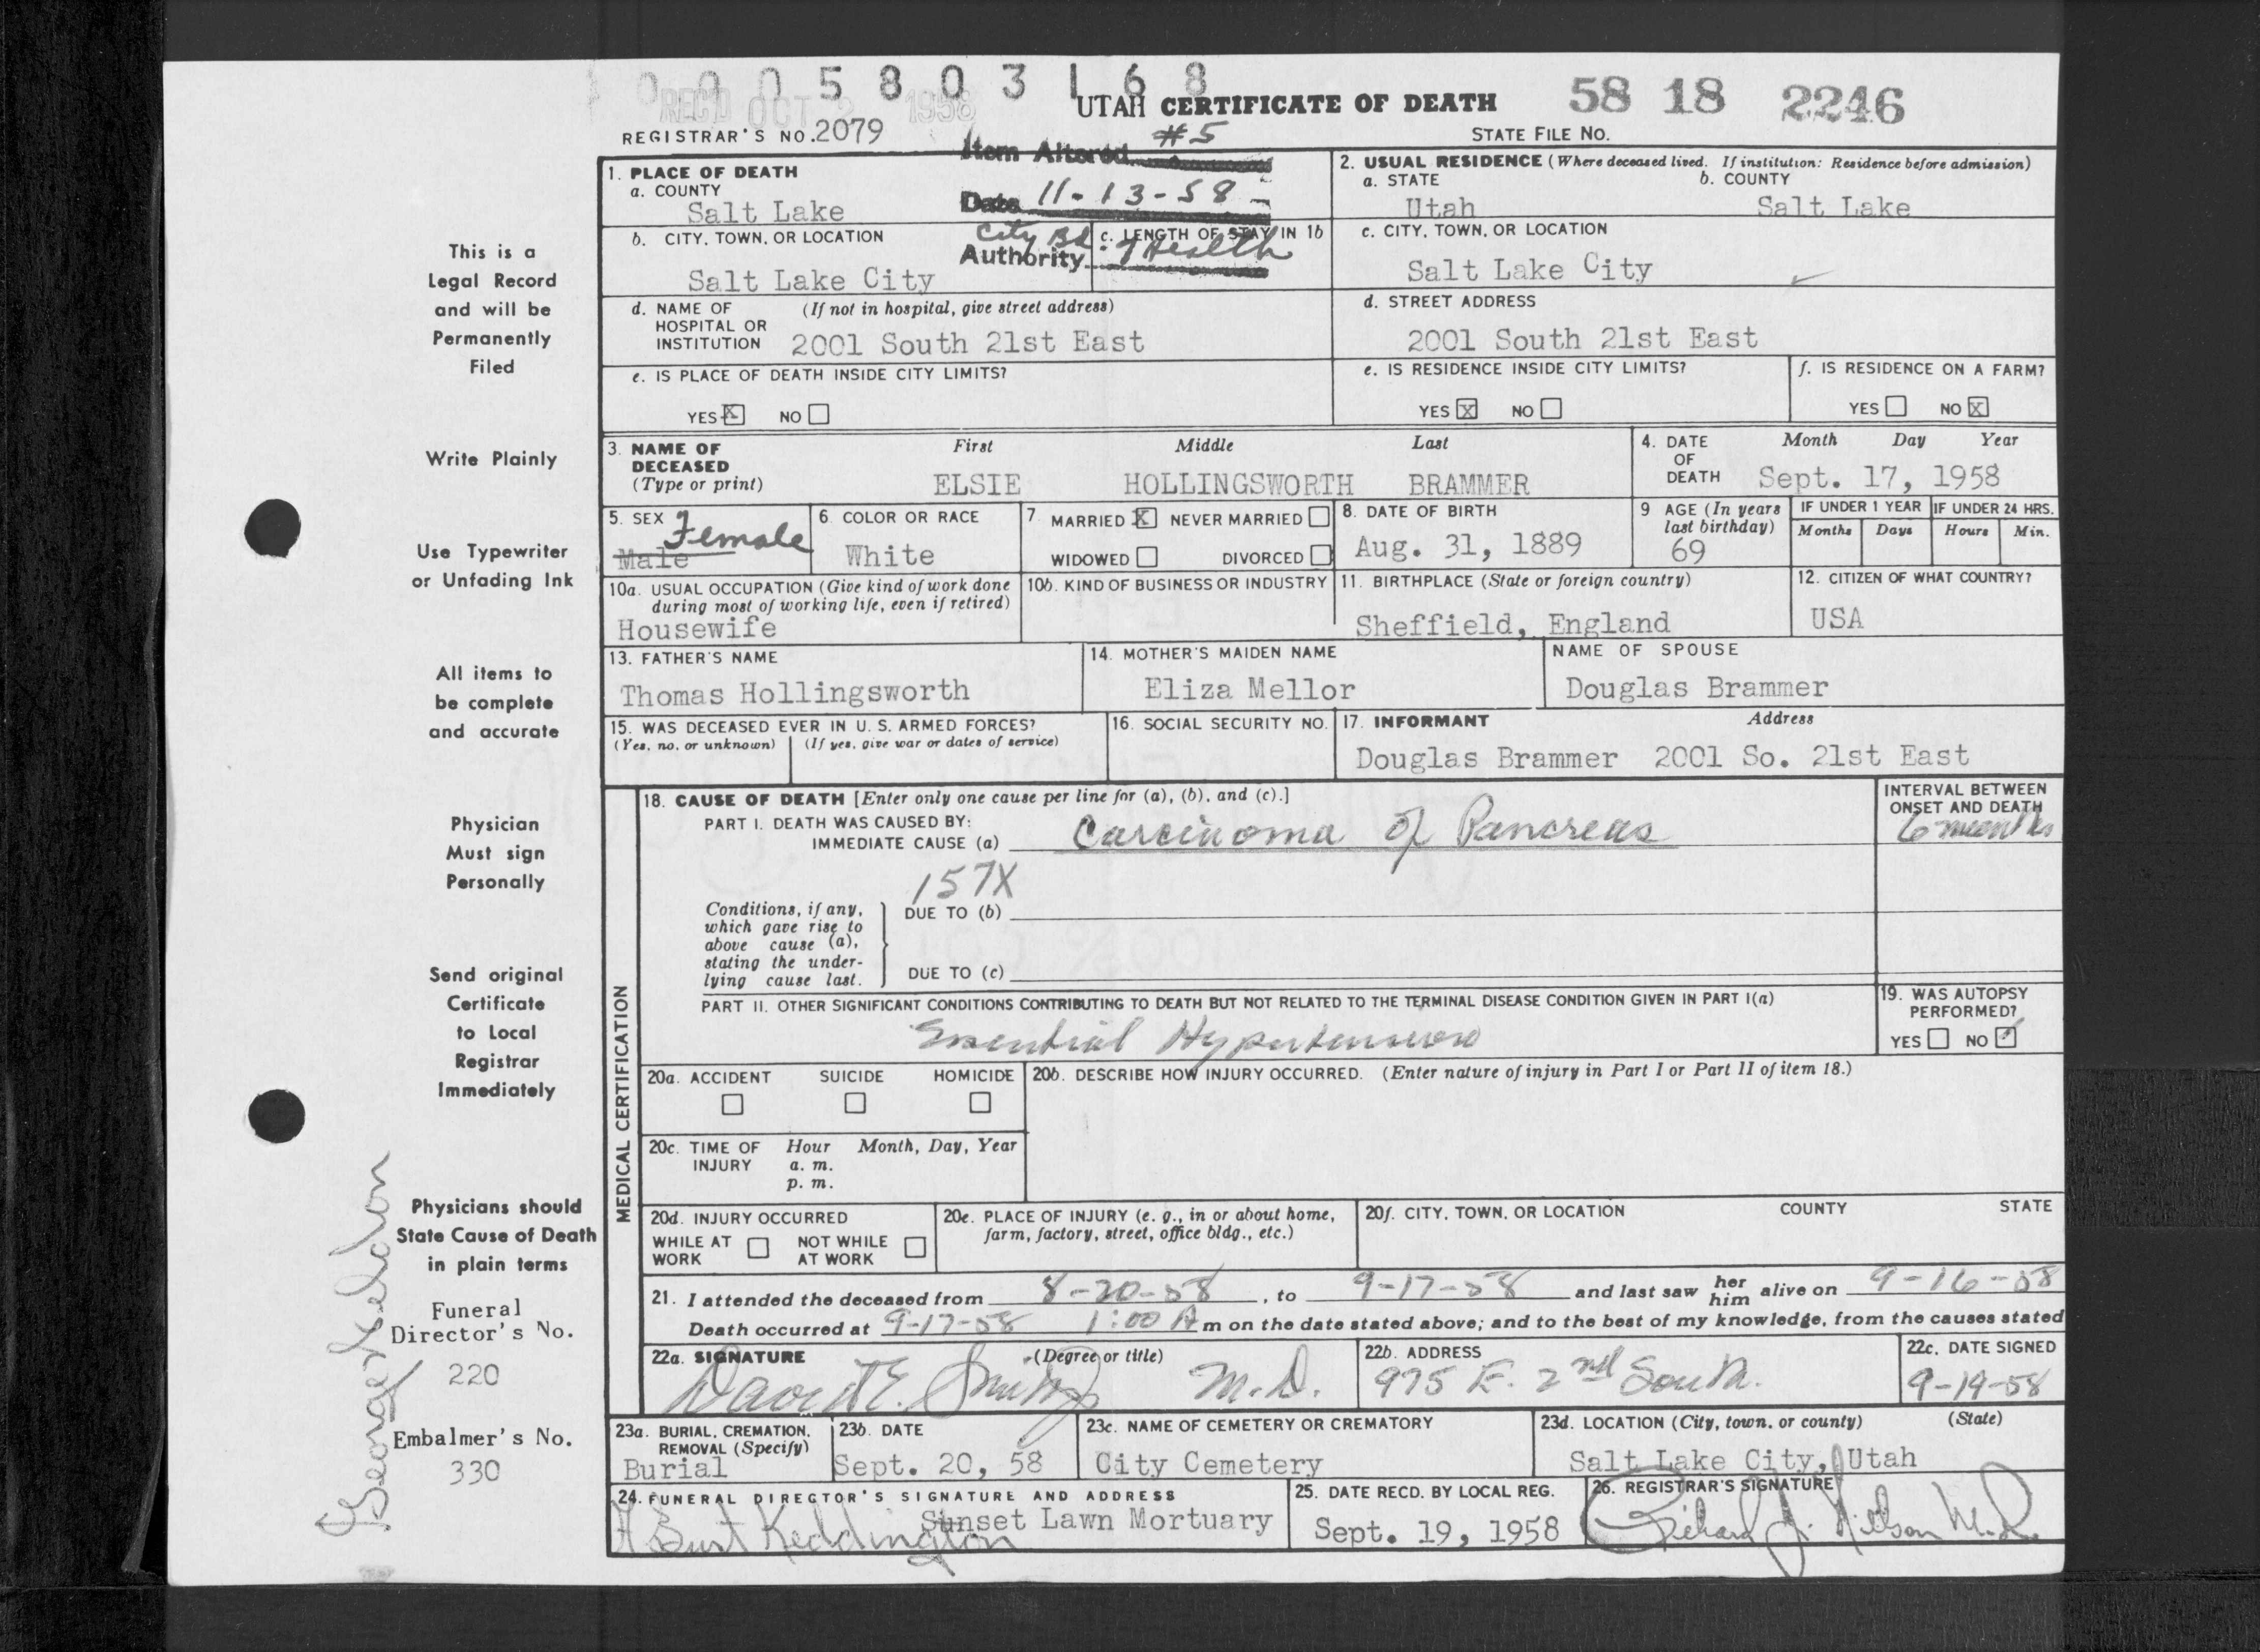 0005803168
REC'D OCT 2 1958
UTAH CERTIFICATE OF DEATH
58 18 2246
REGISTRAR'S NO. 2079
STATE FILE NO.
Item Altered #5
Date 11-13-58
Authority City Bd. of Health
1. PLACE OF DEATH
a. COUNTY
Salt Lake
b. CITY, TOWN, OR LOCATION
Salt Lake City
c. LENGTH OF STAY IN 1b
d. NAME OF HOSPITAL OR INSTITUTION (If not in hospital, give street address)
2001 South 21st East
e. IS PLACE OF DEATH INSIDE CITY LIMITS?
YES X NO
2. USUAL RESIDENCE (Where deceased lived. If institution: Residence before admission)
a. STATE
Utah
b. COUNTY
Salt Lake
c. CITY, TOWN, OR LOCATION
Salt Lake City
d. STREET ADDRESS
2001 South 21st East
e. IS RESIDENCE INSIDE CITY LIMITS?
YES X NO
f. IS RESIDENCE ON A FARM?
YES NO X
3. NAME OF DECEASED (Type or print)
First Middle Last
ELSIE HOLLINGSWORTH BRAMMER
4. DATE OF DEATH Month Day Year
Sept. 17, 1958
5. SEX
Female
Male
6. COLOR OR RACE
White
7. MARRIED X NEVER MARRIED
WIDOWED DIVORCED
8. DATE OF BIRTH
Aug. 31, 1889
9 AGE (In years last birthday)
69
IF UNDER 1 YEAR
Months Days
IF UNDER 24 HRS.
Hours Min.
10a. USUAL OCCUPATION (Give kind of work done during most of working life, even if retired)
Housewife
10b. KIND OF BUSINESS OR INDUSTRY
11. BIRTHPLACE (State or foreign country)
Sheffield, England
12. CITIZEN OF WHAT COUNTRY?
USA
13. FATHER'S NAME
Thomas Hollingsworth
14. MOTHER'S MAIDEN NAME
Eliza Mellor
NAME OF SPOUSE
Douglas Brammer
15. WAS DECEASED EVER IN U. S. ARMED FORCES?
(Yes, no, or unknown) (If yes, give war or dates of service)
16. SOCIAL SECURITY NO.
17. INFORMANT Address
Douglas Brammer 2001 So. 21st East
MEDICAL CERTIFICATION
18. CAUSE OF DEATH [Enter only one cause per line for (a), (b), and (c).]
PART I. DEATH WAS CAUSED BY:
IMMEDIATE CAUSE (a) Carcinoma of Pancreas
INTERVAL BETWEEN ONSET AND DEATH
6 months
157X
Conditions, if any, which gave rise to above cause (a), stating the underlying cause last.
DUE TO (b)
DUE TO (c)
PART II. OTHER SIGNIFICANT CONDITIONS CONTRIBUTING TO DEATH BUT NOT RELATED TO THE TERMINAL DISEASE CONDITION GIVEN IN PART I(a)
Essential Hypertension
19. WAS AUTOPSY PERFORMED?
YES NO ✓
20a. ACCIDENT SUICIDE HOMICIDE
20b. DESCRIBE HOW INJURY OCCURRED. (Enter nature of injury in Part I or Part II of item 18.)
20c. TIME OF INJURY Hour Month, Day, Year
a. m.
p. m.
20d. INJURY OCCURRED
WHILE AT WORK NOT WHILE AT WORK
20e. PLACE OF INJURY (e. g., in or about home, farm, factory, street, office bldg., etc.)
20f. CITY, TOWN, OR LOCATION COUNTY STATE
21. I attended the deceased from 8-20-58, to 9-17-58 and last saw her him alive on 9-16-58
Death occurred at 9-17-58 1:00 A m on the date stated above; and to the best of my knowledge, from the causes stated
22a. SIGNATURE (Degree or title)
David E. Smith M.D.
22b. ADDRESS
975 E. 2nd South.
22c. DATE SIGNED
9-19-58
23a. BURIAL, CREMATION, REMOVAL (Specify)
Burial
23b. DATE
Sept. 20, 58
23c. NAME OF CEMETERY OR CREMATORY
City Cemetery
23d. LOCATION (City, town, or county) (State)
Salt Lake City, Utah
24. FUNERAL DIRECTOR'S SIGNATURE AND ADDRESS
Burt Keddington
Sunset Lawn Mortuary
25. DATE RECD. BY LOCAL REG.
Sept. 19, 1958
26. REGISTRAR'S SIGNATURE
Richard J. Nilson M.D.
This is a
Legal Record
and will be
Permanently
Filed
Write Plainly
Use Typewriter
or Unfading Ink
All items to
be complete
and accurate
Physician
Must sign
Personally
Send original
Certificate
to Local
Registrar
Immediately
Physicians should
State Cause of Death
in plain terms
Funeral
Director's No.
220
Embalmer's No.
330
George